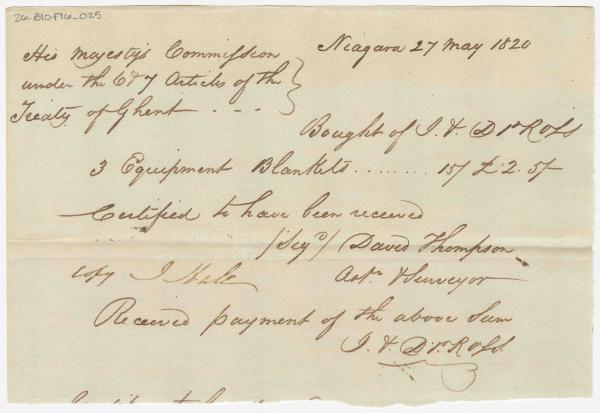 26-B10F16_025
His Majesty's Commission
under the 6 & 7 Articles of the
Treaty of Ghent . . . .
Niagara 27 May 1820
Bought of J. & D. Ross
3 Equipment Blankets ......... 15/ £2. 5/-
Certified to have been received
(Sigd) David Thompson
Astr & Surveyor
Copy J Hale
Received payment of the above Sum
J. & D. Ross